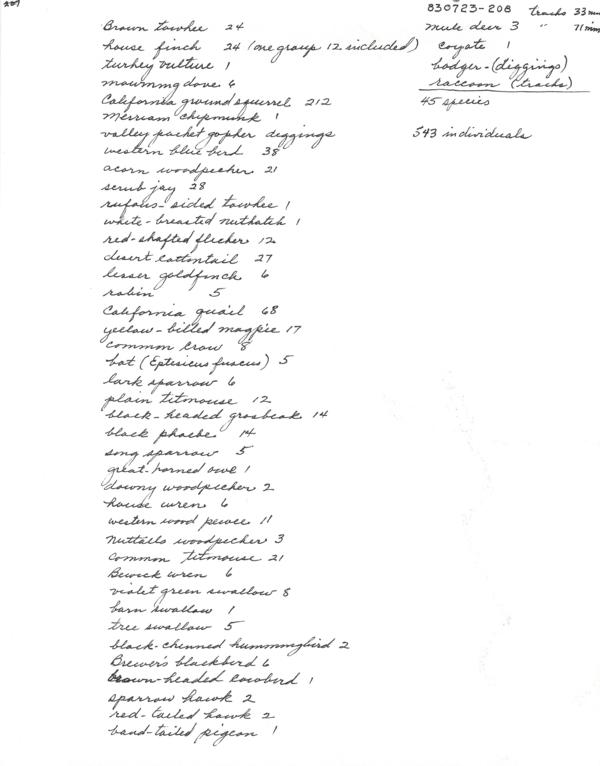 Brown towhee 24
house finch 24 (one group 12 included)
turkey vulture 1
mourning dove 6
California ground squirrel 212
Merriam chipmunk 1
valley pocket gopher diggings
western blue bird 38
acorn woodpecker 21
scrub jay 28
rufous-sided towhee 1
white-breasted nuthatch 1
red-shafted flicker 12
desert cottontail 27
lesser goldfinch 6
robin 5
California quail 68
yellow-billed magpie 17
common crow 8
bat (Eptesicus fuscus) 5
lark sparrow 6
plain titmouse 12
black-headed grosbeak 14
black phoebe 14
song sparrow 5
great-horned owl 1
downy woodpecker 2
house wren 6
western wood pewee 11
Nuttalls woodpecker 3
common titmouse 21
Bewick wren 6
violet green swallow 8
barn swallow 1
tree swallow 5
black-chinned hummingbird 2
Brewer's blackbird 6
brown-headed cowbird 1
sparrow hawk 2
red-tailed hawk 2
band-tailed pigeon 1
830723-208 tracks 33 mm
mule deer 3 " 71 mm
coyote 1
badger-(diggings)
raccoon (tracks)
45 species
543 individuals